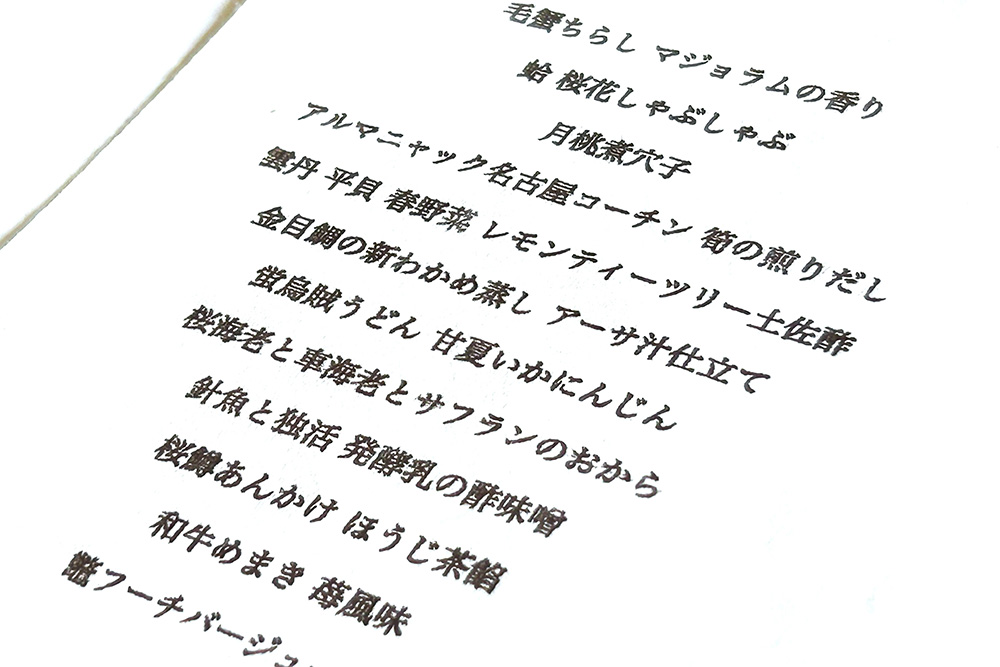 毛蟹ちらし マジョラムの香り
蛤 桜花しゃぶしゃぶ
月桃煮穴子
アルマニャック名古屋コーチン 筍の煎りだし
雲丹 平貝 春野菜 レモンティーツリー土佐酢
金目鯛の新わかめ蒸し アーサ汁仕立て
蛍烏賊うどん 甘夏いかにんじん
桜海老と車海老とサフランのおから
針魚と独活 発酵乳の酢味噌
桜鱒あんかけ ほうじ茶餡
和牛めまき 苺風味
フーチバージュ